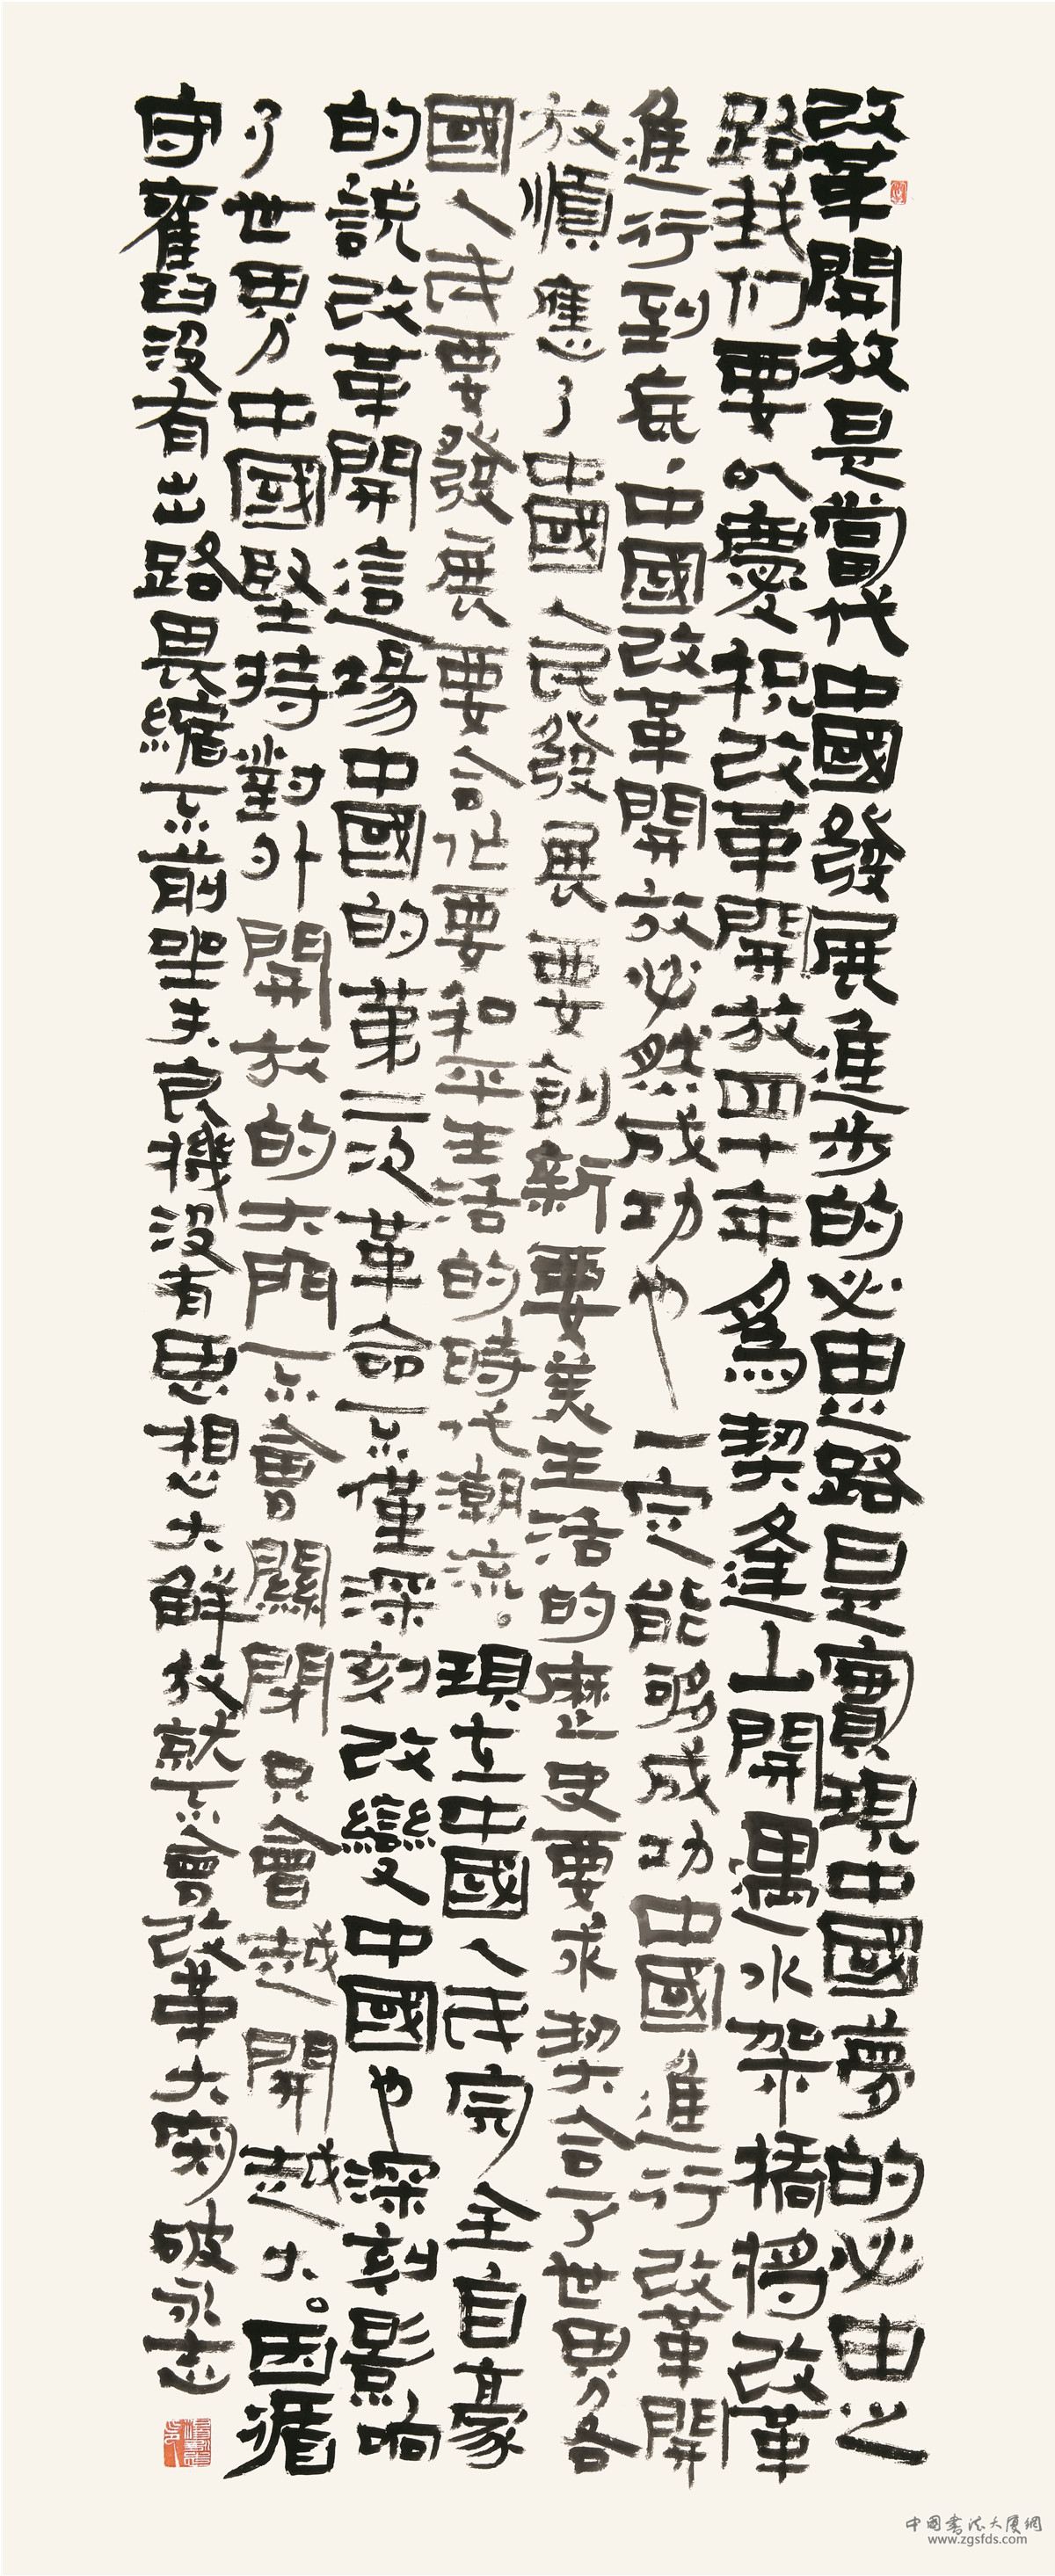 改革開放是當代中國發展進步的必由之路是實現中國夢的必由之
路我们要以慶祝改革開放四十年爲契逢山開遇水架橋將改革
進行到底、中國改革開放必然成功也一定能夠成功中國進行改革開
放順應了中國人民發展要創新要美生活的歷史要求契合了世界各
國人民要發展要合作要和平生活的時代潮流。現在中國人民完全自豪
的說改革開這場中國的第二次革命不僅深刻改變中國也深刻影响
了世界中國堅持對外開放的大門不會關閉只會越開越大。因循
守舊没有出路畏縮不前坐失良機没有思想大解放就不會改革大突破永志
中國書法大廈網
www.zgsfds.com